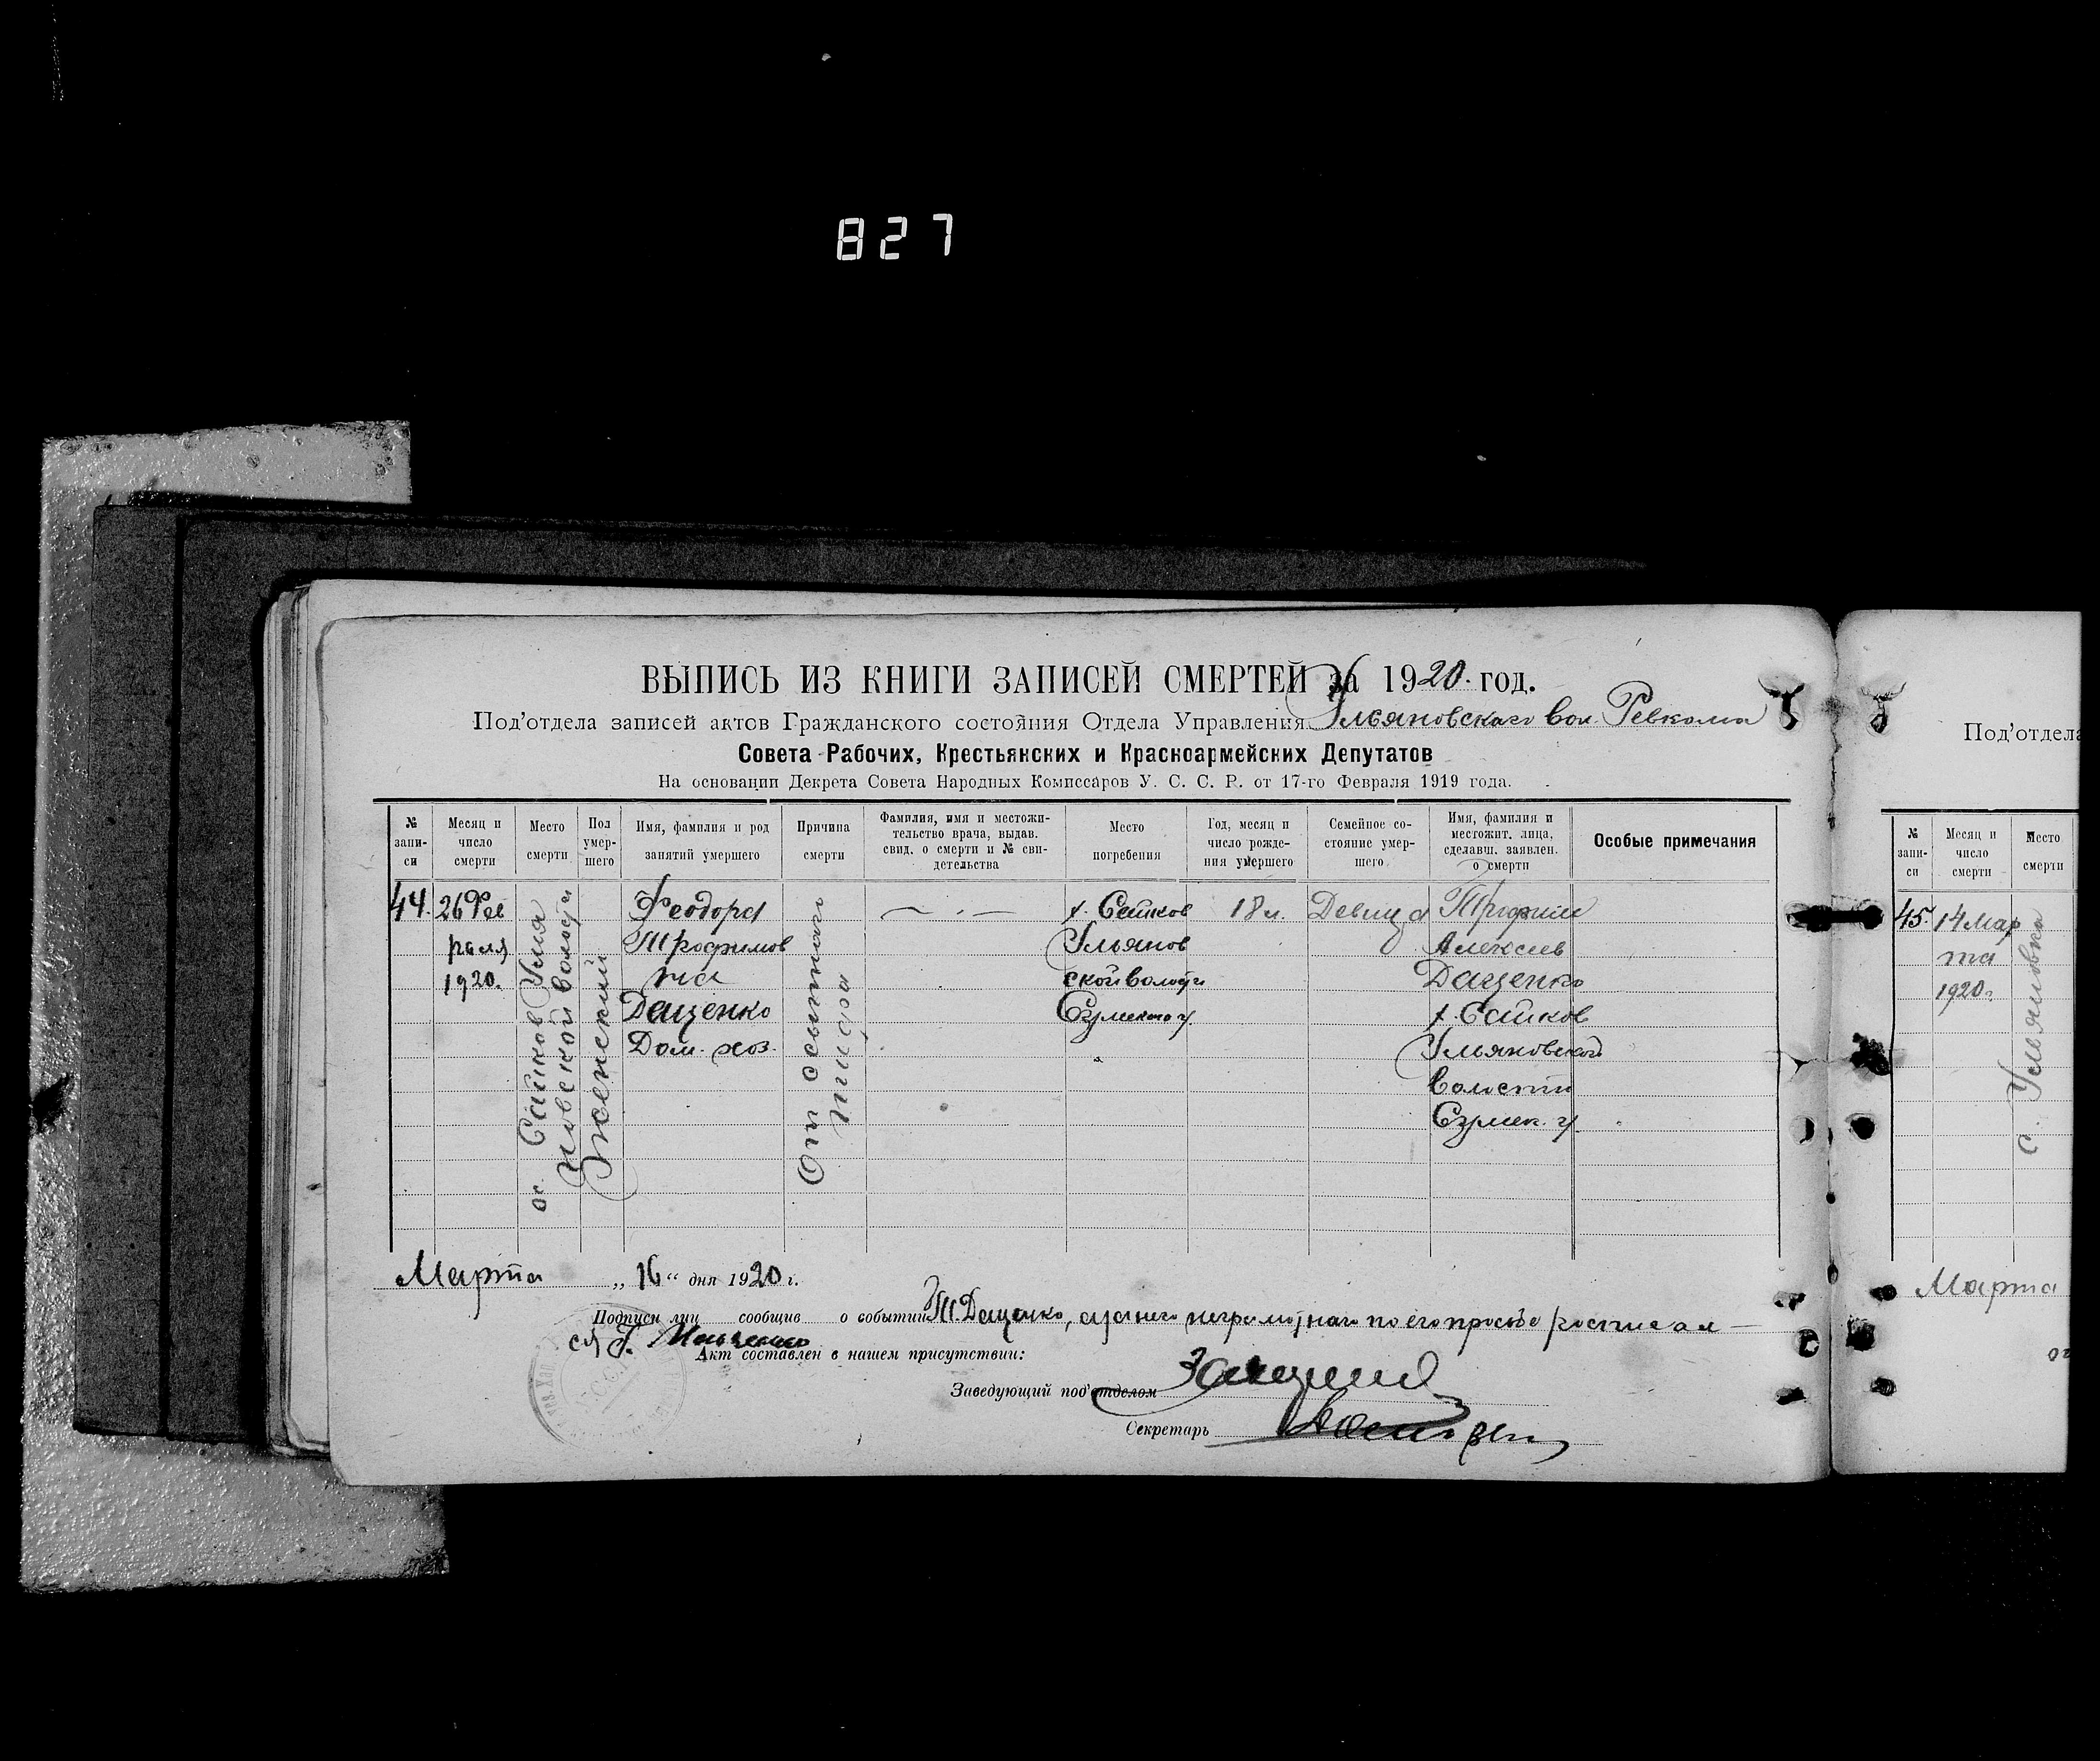 827
ВЫПИСЬ ИЗ КНИГИ ЗАПИСЕЙ СМЕРТЕЙ за 1920 год.
Под'отдела записей актов Гражданского состояния Отдела Управления Ульяновскаго вол. Ревкома
Совета Рабочих, Крестьянских и Красноармейских Депутатов
На основании Декрета Совета Народных Комиссаров У. С. С. Р. от 17-го Февраля 1919 года.
№ запи- си
Месяц и число смерти
Место смерти
Пол умер- шего
Имя, фамилия и род занятий умершего
Причина смерти
Фамилия, имя и местожи- тельство врача, выдав. свид. о смерти и № сви- детельства
Место погребения
Год, месяц и число рожде- ния умершего
Семейное со- стояние умер- шего
Имя, фамилия и местожит. лица, сделавш. заявлен. о смерти
Особые примечания
44.
26 Фев
раля
1920.
Сайков Улья
новской волости
Женский
Феодора
Трофимов
на
Даценко
Дом. хоз.
От сыпного
тифа
х. Сайков
Ульянов
ской волости
Сумского у.
18 л.
Девица
Трофим
Алексеев
Даценко
х. Сайков
Ульяновской
волости
Сумск. у.
Марта „16“ дня 1920 г.
Подписи лиц сообщив о событии Т. Даценко, а за него неграмотнаго по его просьбе росписал
ся Г.
Акт составлен в нашем присутствии:
Заведующий под'отделом
Секретарь
Под'отдела
№ запи- си
Месяц и число смерти
Место смерти
45.
14 Мар
та
1920 г.
с. Ульяновка
Марта